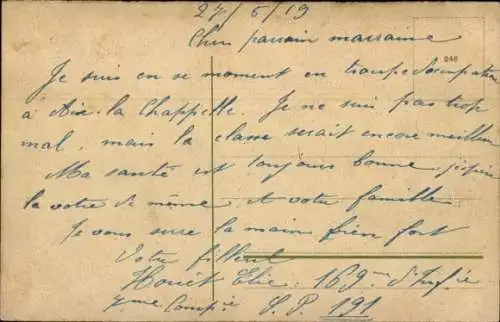 27/5/19
Cher parrain marraine
246
Je suis en se moment en troupe d'ocupation
à Aix-la Chappelle. Je ne suis pas trop
mal, mais la classe serait encore meilleur
Ma santé est toujours bonne j'espère
la votre de même. A votre famille
Je vous serre la main bien fort
Votre filleul
Houët Elie 169ème d'Infie
7ème Compie S.P. 191